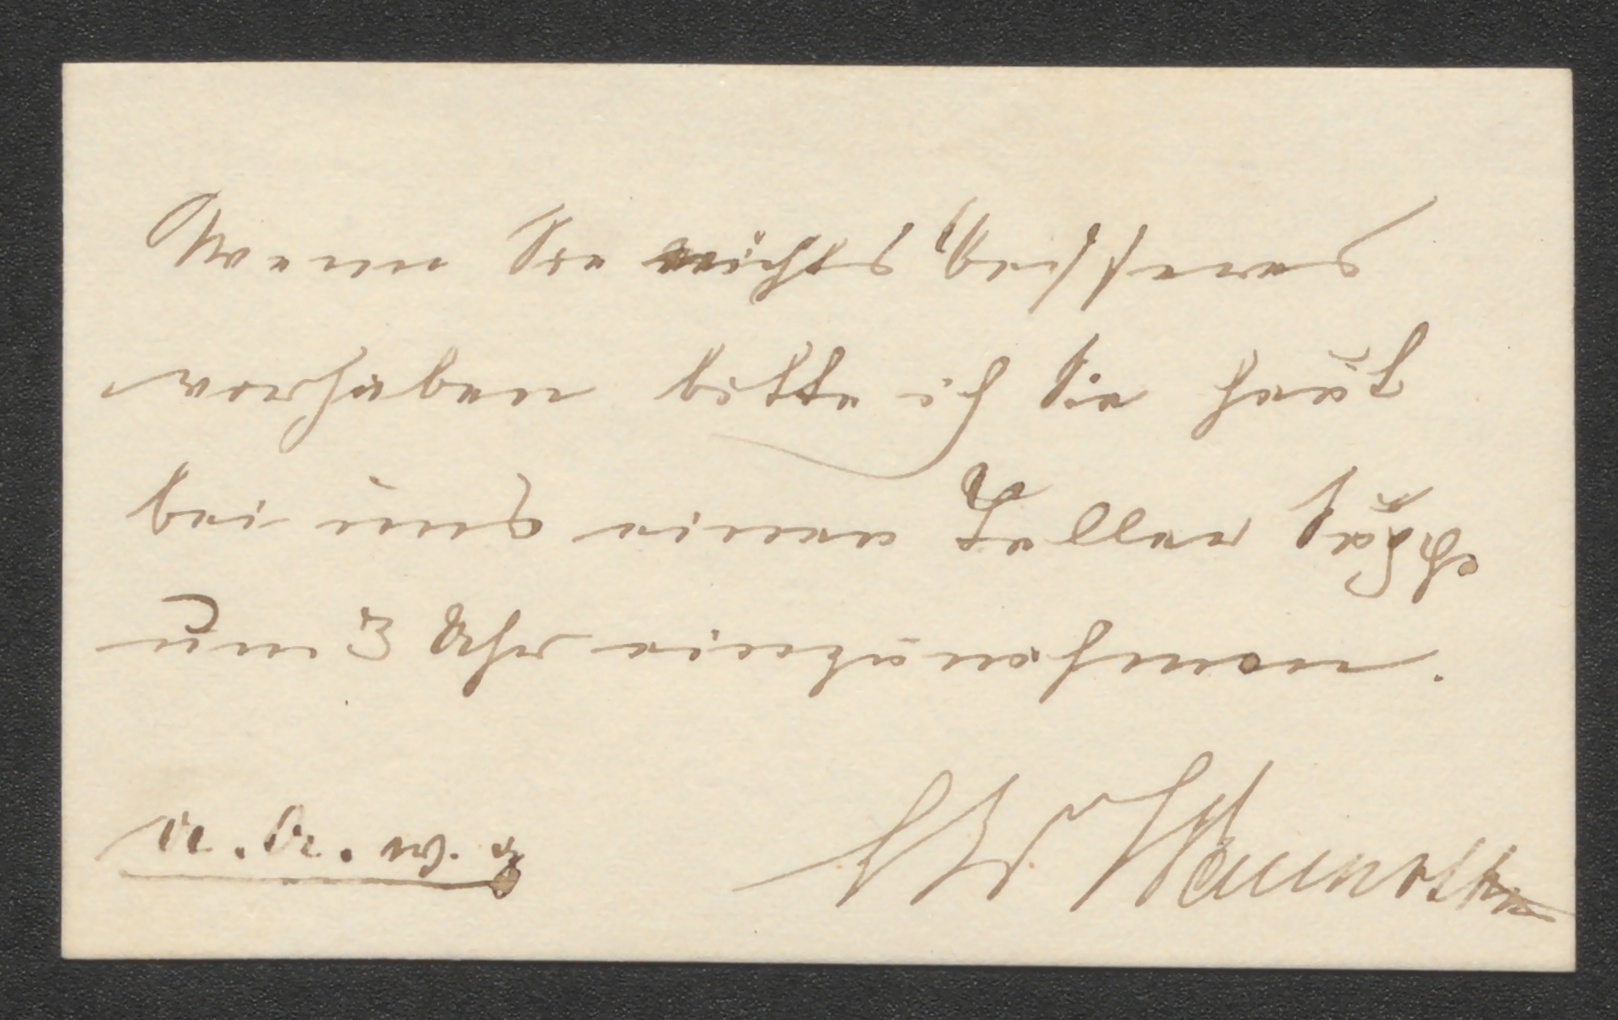 Wenn Sie nichts besseres
vorhaben bitte ich Sie heut
bei uns einen Teller Suppe
um 3 Uhr einzunehmen.
u. A. w. g